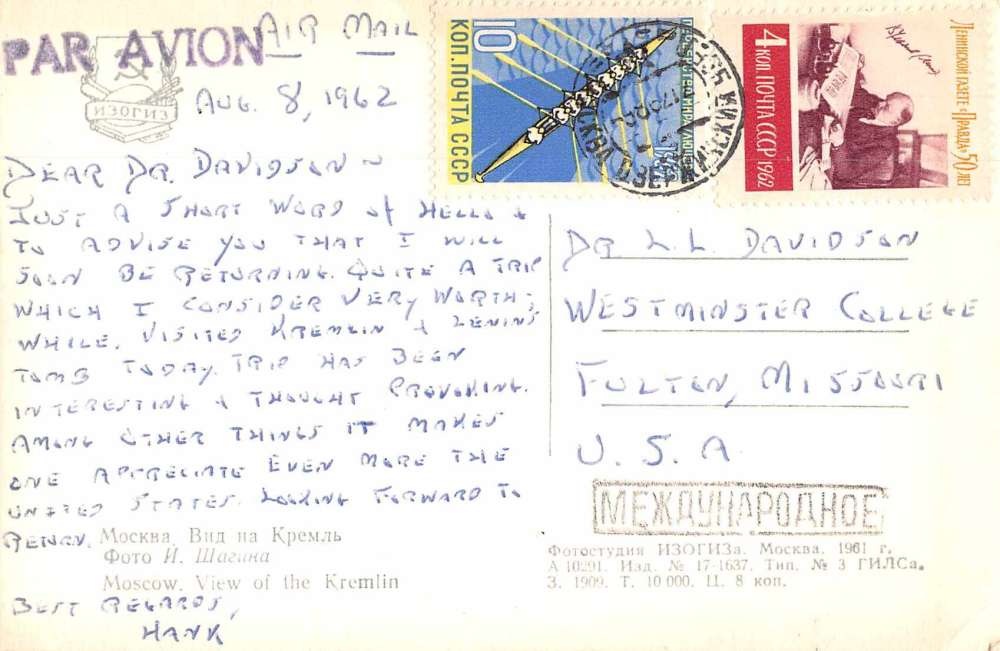 PAR AVION
AIR MAIL
ИЗОГИЗ
AUG. 8, 1962
10 КОП. ПОЧТА СССР
МИРА
1962
4 КОП. ПОЧТА СССР 1962
ЛЕНИНСКОЙ ГАЗЕТЕ «ПРАВДА» 50 ЛЕТ
DEAR DR. DAVIDSON ~
JUST A SHORT WORD OF HELLO &
TO ADVISE YOU THAT I WILL
SOON BE RETURNING. QUITE A TRIP
WHICH I CONSIDER VERY WORTH-
WHILE. VISITED KREMLIN & LENINS
TOMB TODAY. TRIP HAS BEEN
INTERESTING & THOUGHT PROVOKING.
AMONG OTHER THINGS IT MAKES
ONE APPRECIATE EVEN MORE THE
UNITED STATES. LOOKING FORWARD TO
BEST REGARDS,
HANK
DR L. L. DAVIDSON
WESTMINSTER COLLEGE
FULTON, MISSOURI
U. S. A.
МЕЖДУНАРОДНОЕ
Москва. Вид на Кремль
Фото И. Шагина
Moscow. View of the Kremlin
Фотостудия ИЗОГИЗа. Москва. 1961 г.
А 10291. Изд. № 17-1637. Тип. № 3 ГИЛСа.
З. 1909. Т. 10 000. Ц. 8 коп.